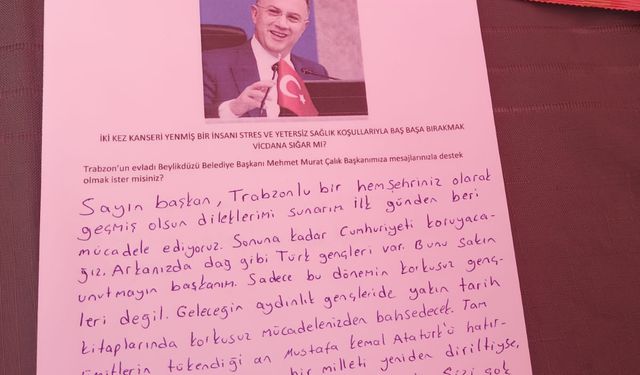 İKİ KEZ KANSERİ YENMİŞ BİR İNSANI STRES VE YETERSİZ SAĞLIK KOŞULLARIYLA BAŞ BAŞA BIRAKMAK
VİCDANA SIĞAR MI?
Trabzon'un evladı Beylikdüzü Belediye Başkanı Mehmet Murat Çalık Başkanımıza mesajlarınızla destek
olmak ister misiniz?
Sayın başkan, Trabzonlu bir hemşehriniz olarak
geçmiş olsun dileklerimi sunarım İlk günden beri
mücadele ediyoruz. Sonuna kadar Cumhuriyeti koruyaca-
ğız. Arkanızda dağ gibi Türk gençleri var. Bunu sakın
unutmayın başkanım. Sadece bu dönemin korkusuz genç-
leri değil. Geleceğin aydınlık gençleride yakın tarih
kitaplarında korkusuz mücadelenizden bahsedecek. Tam
ümitlerin tükendiği an Mustafa Kemal Atatürk'ü hatır-
bir milleti yeniden dirilttiyse,
Sizi çok